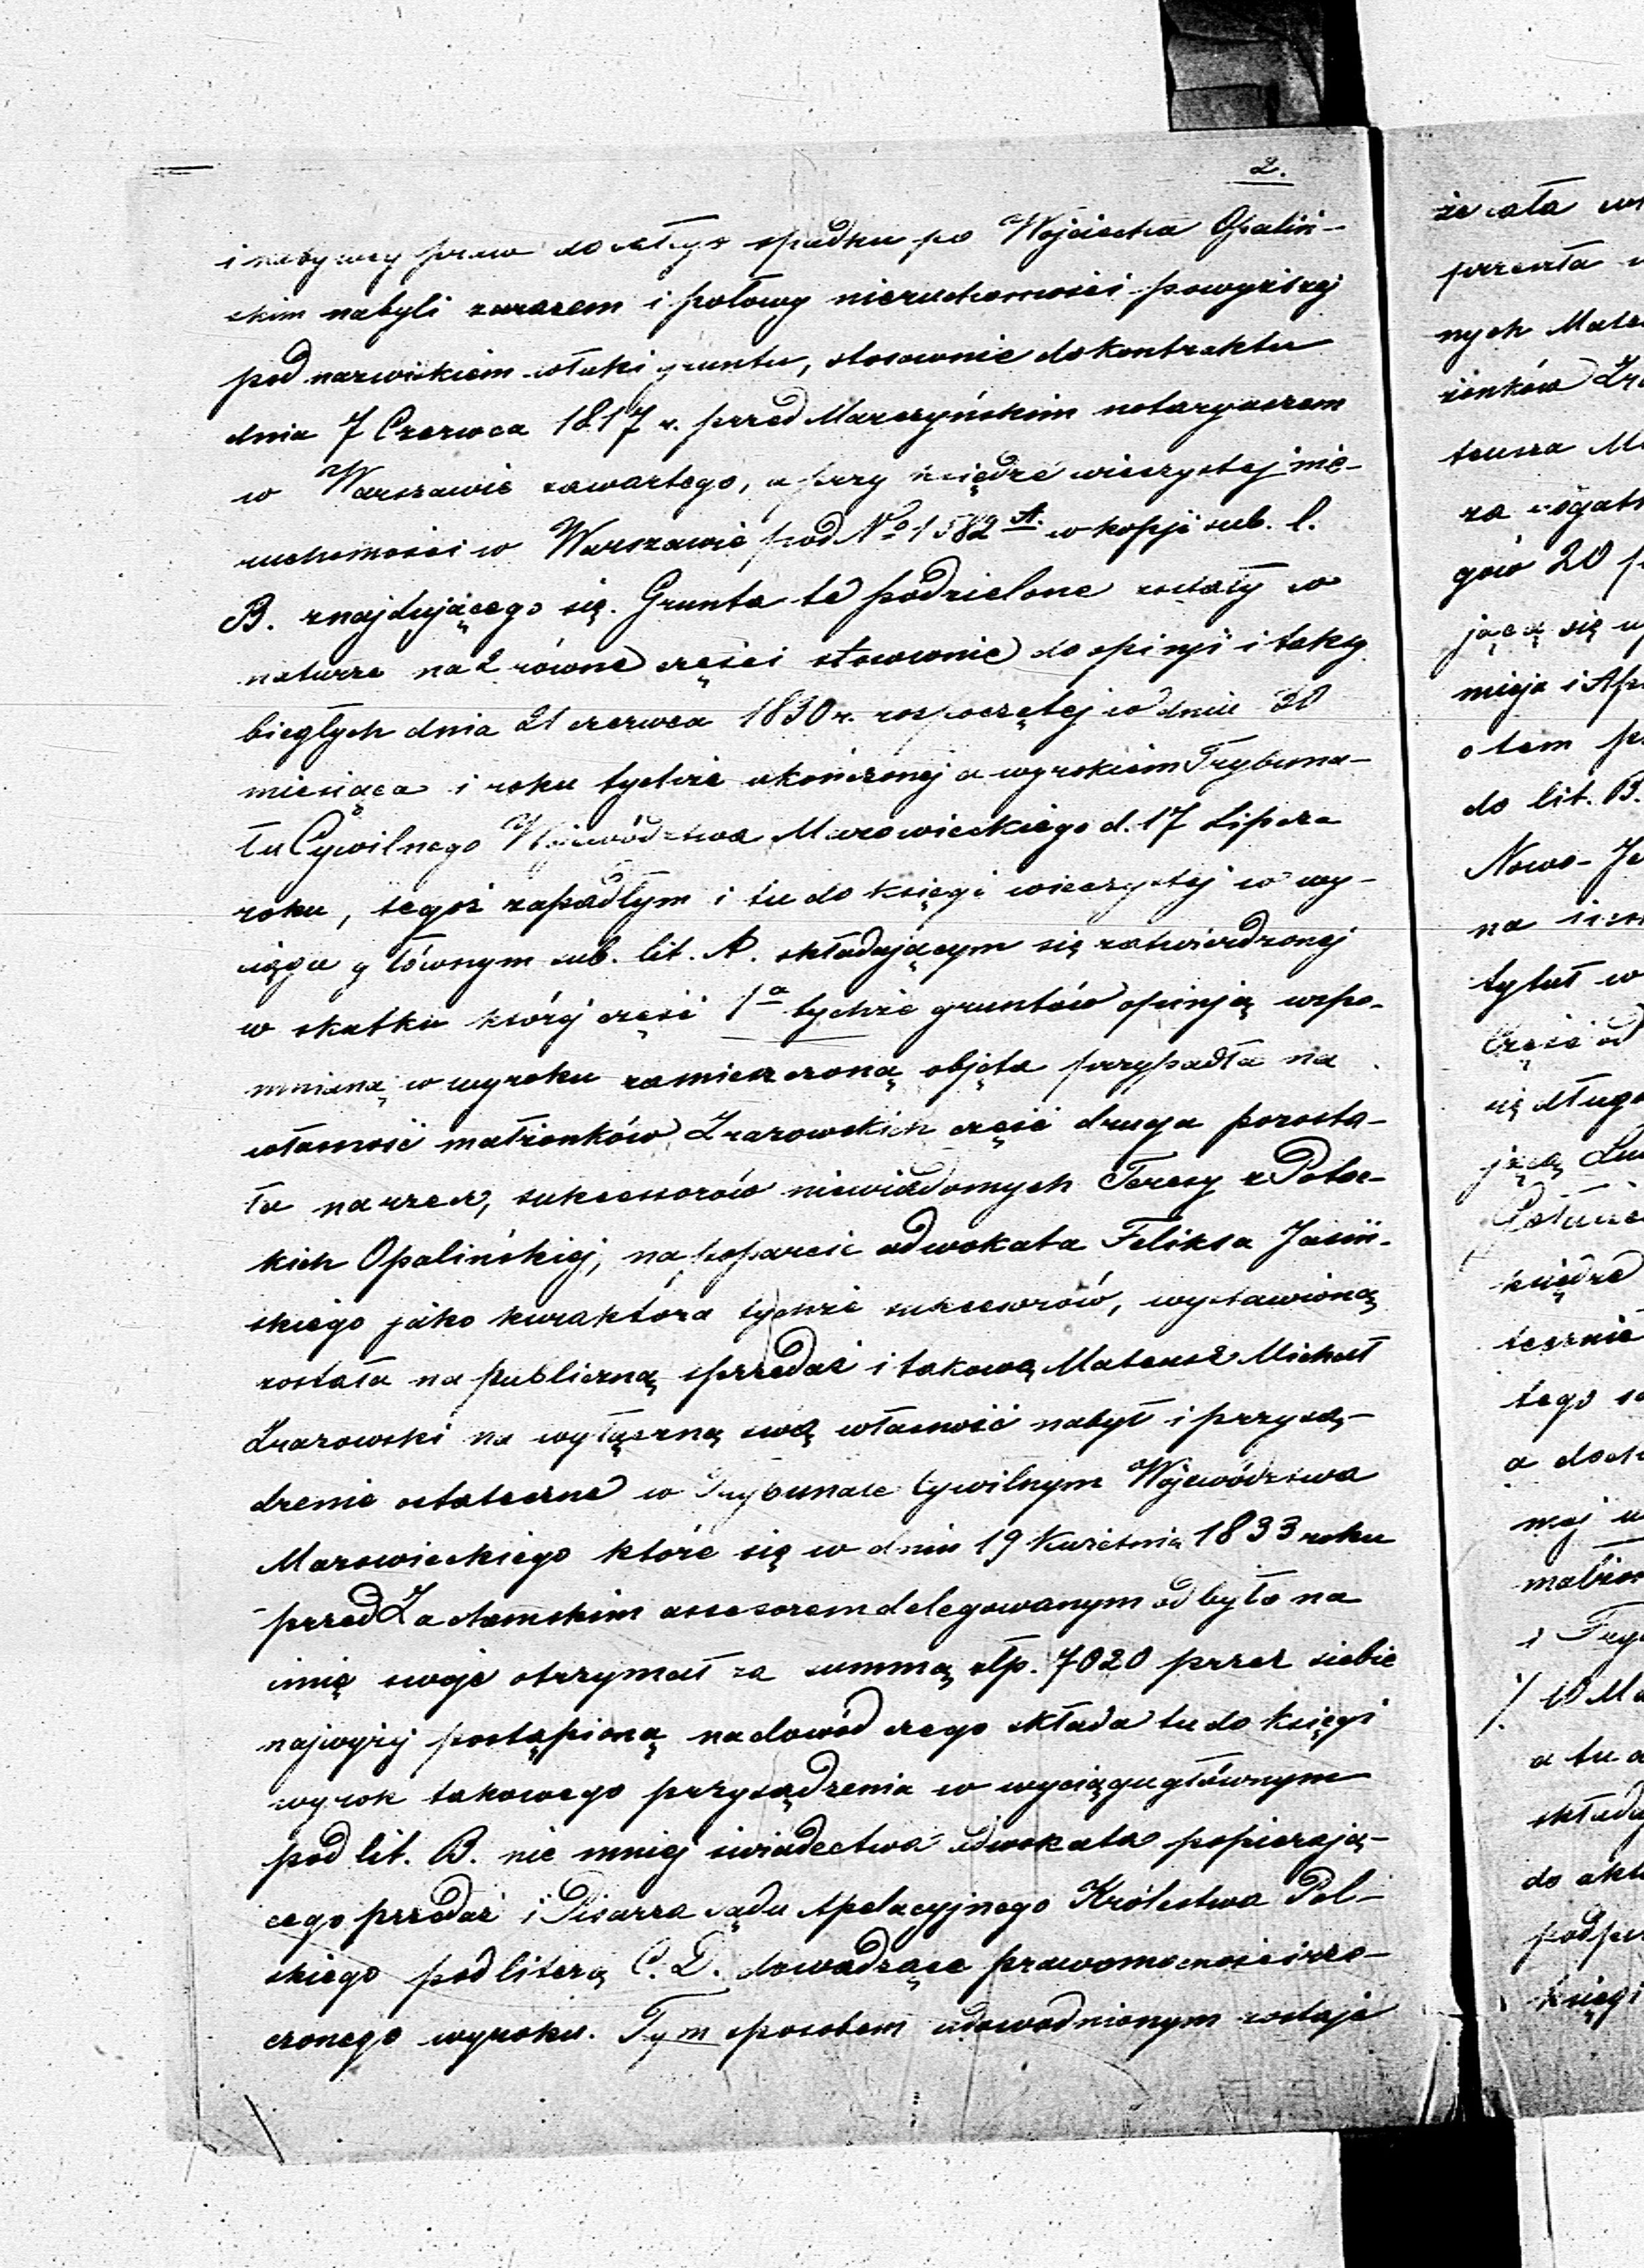 2.
i nabywcy praw do całego spadku po Wojciechu Opaliń-
skim nabyli zarazem i połowy nieruchomości powyższej
pod nazwiskiem włuki gruntu, stosownie do kontraktu
dnia 7 Czerwca 1817 r. przed Marczyńskim notaryuszem
w Warszawie zawartego, a przy księdze wieczystej nie-
ruchomości w Warszawie pod No 1582 A. w kopji sub. l.
B. znajdującego się. Grunta te podzielone zostały w
naturze na 2 równe części stosownie do opinji i taksy
biegłych dnia 21 czerwca 1830 r. rozpoczętej w dniu 30
miesiąca i roku tychże ukończonej a wyrokiem Trybuna-
łu Cywilnego Województwa Mazowieckiego d. 17 Lipca
roku, tegoż zapadłym i tu do księgi wieczystej w wy-
ciągu głównym sub. lit. A. składającym się zatwierdzonej
w skutku której część 1a tychże gruntów opinją wspo-
mnianą w wyroku zamieszczoną objęta przypadła na
własność małżonków Zrazowskich część druga pozosta-
ła na rzecz, sukcessorów niewiadomych Teresy z Potoc-
kich Opalińskiej, na poparcie adwokata Feliksa Jasiń-
skiego jako kuraktóra tychże sukcesorów, wystawioną
została na publiczną sprzedaż i takową Mateusz Michał
Zrazowski na wyłączną swą własność nabył i przysą-
dzenie ostateczne w Trybunale Cywilnym Województwa
Mazowieckiego które się w dniu 19 Kwietnia 1833 roku
przed assesorem delegowanym odbyło na
imię swoje otrzymał za summą złp. 7020 przez siebie
najwyżej postąpioną na dowód czego składa tu do księgi
wyrok takowego przysądzenia w wyciągu głównym
pod lit. B. nie mniej świadectwa adwokata popierają-
cego przedaż i Pisarza sądu Apelacyjnego Królestwa Pol-
skiego pod literą C. D. dowodzące prawomocności rze-
czonego wyroku. Tym sposobem udowodnionym zostaje
że cała
nych
żonków
o tem
do lit. B.
na
tytuł w
Część od
się długo
księdze
tego
a tu
do akt
księgi